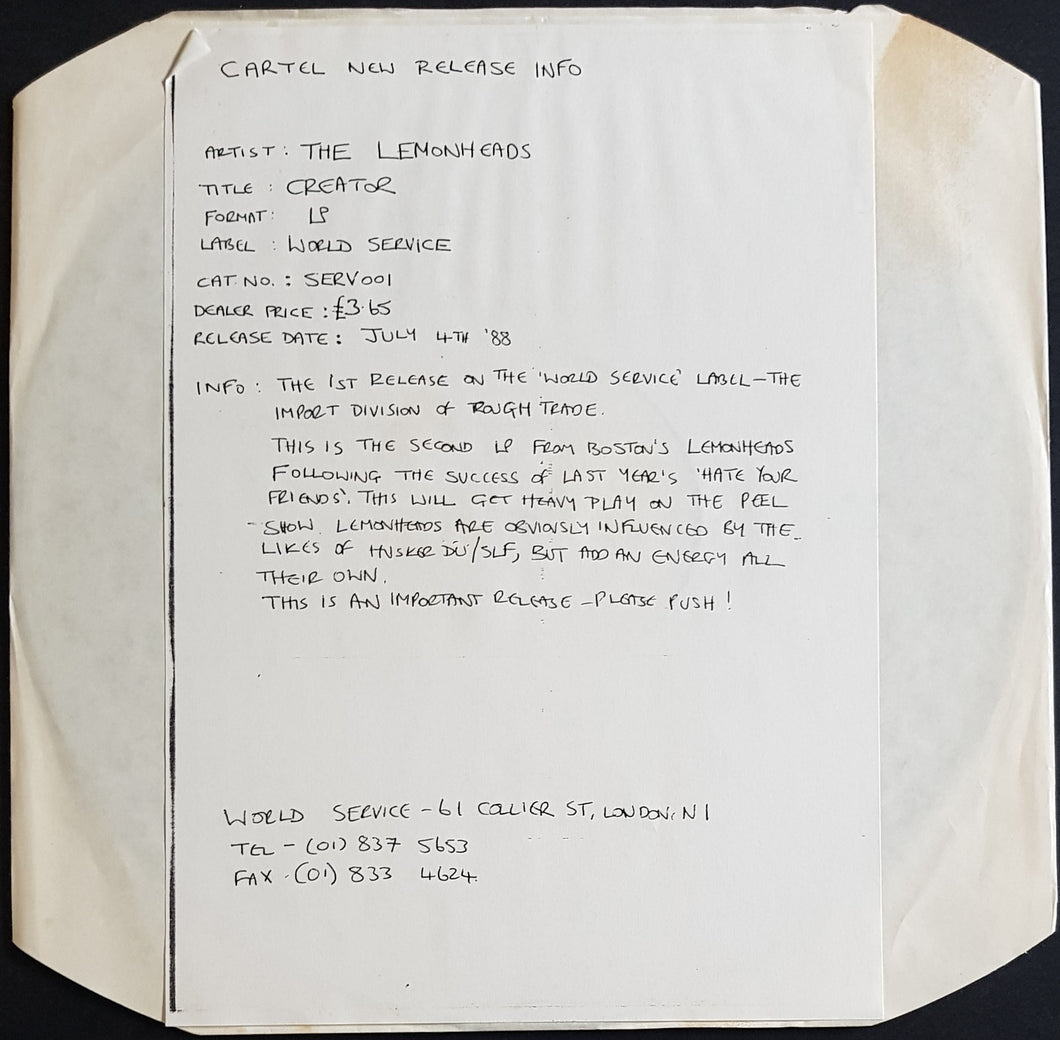 CARTEL NEW RELEASE INFO
ARTIST: THE LEMONHEADS
TITLE: CREATOR
FORMAT: LP
LABEL: WORLD SERVICE
CAT. NO.: SERV001
DEALER PRICE: £3.65
RELEASE DATE: JULY 4TH '88
INFO: THE 1ST RELEASE ON THE 'WORLD SERVICE' LABEL – THE
IMPORT DIVISION of ROUGH TRADE.
THIS IS THE SECOND LP FROM BOSTON'S LEMONHEADS
FOLLOWING THE SUCCESS of LAST YEAR'S 'HATE YOUR
FRIENDS'. THIS WILL GET HEAVY PLAY ON THE PEEL
SHOW. LEMONHEADS ARE OBVIOUSLY INFLUENCED BY THE
LIKES OF HUSKER DU/SLF, BUT ADD AN ENERGY ALL
THEIR OWN.
THIS IS AN IMPORTANT RELEASE – PLEASE PUSH!
WORLD SERVICE – 61 COLLIER ST, LONDON, N1
TEL – (01) 837 5653
FAX - (01) 833 4624.